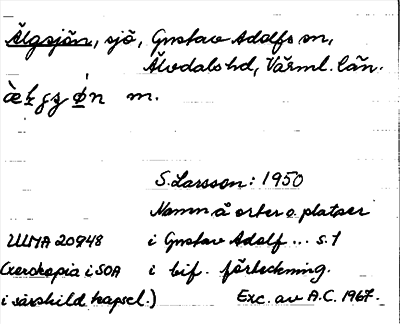 Älgsjön, sjö, Gustav Adolfs sn,
Älvdals hd, Värml. län.
m.
S. Larsson: 1950
Namn å orter o. platser
ULMA 20948 i Gustav Adolf ... s. 1
(Xerokopia i SOA i bif. förteckning.
i särskild kapsel.) Exc. av A.C. 1967.